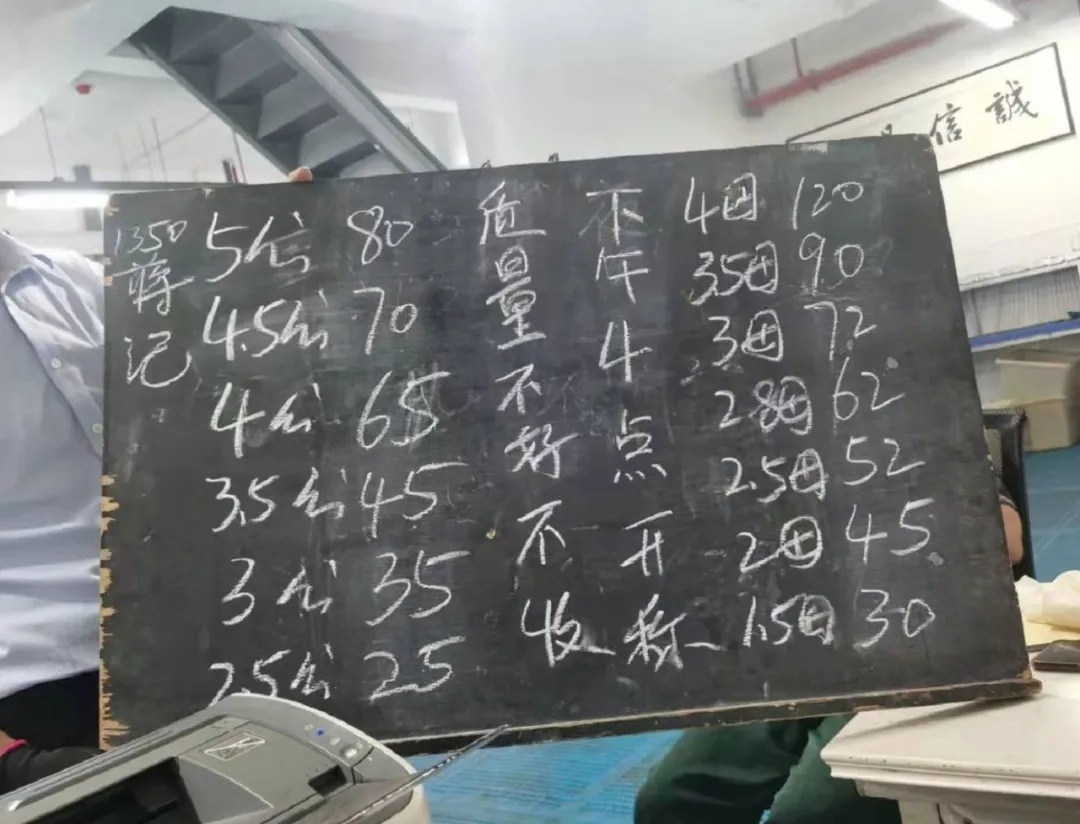 誠信
1350
蒋记
5公 80
4.5公 70
4公 65
3.5公 45
3公 35
2.5公 25
质量不好不收
下午4点开称
4母 120
3.5母 90
3母 72
2.8母 62
2.5母 52
2母 45
1.5母 30